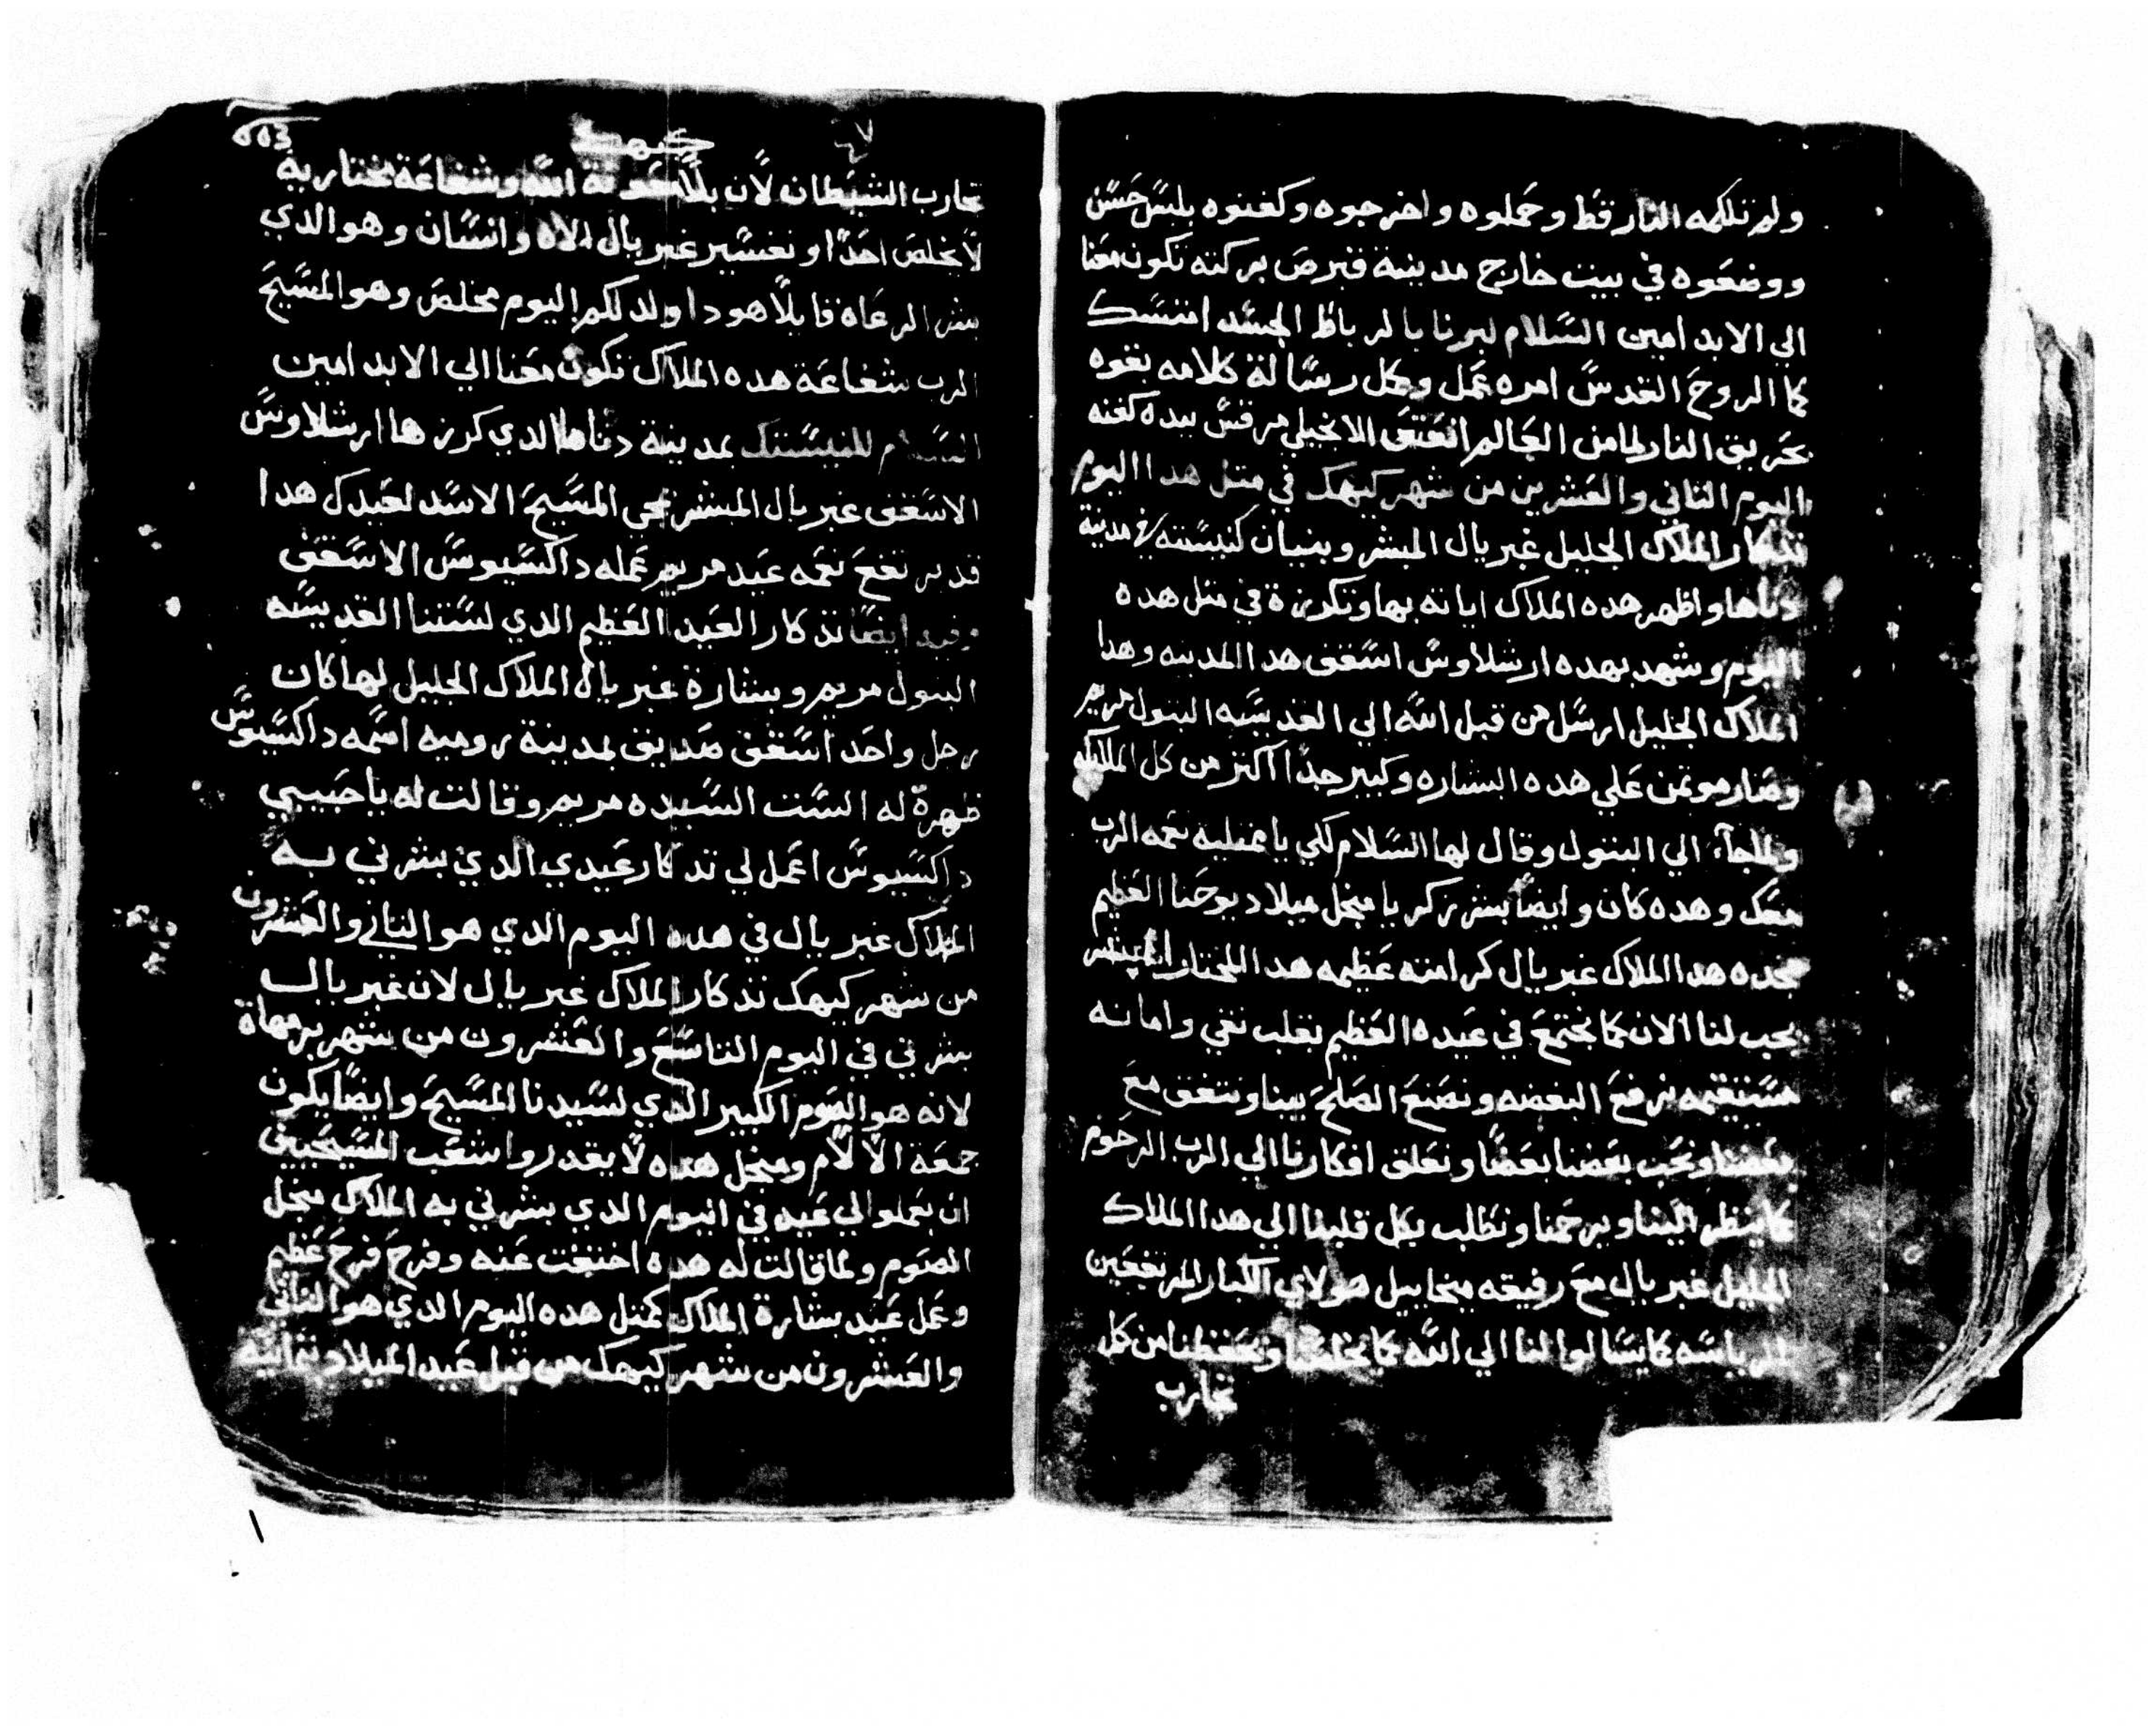 ولم تلكمه النار قط وحملوه واخرجوه وكفنوه بلبس حسن
ووضعوه في بيت خارج مدينة قبرص بركته تكون معنا
الي الابد امين السلام لبرنا بالرباط الجسد امتسك
كما الروح القدس امره عمل وكل رسالة كلامه بفوه
بحريق النار لما من العالم انعتق الانجيلي مرقس بيده كفنه
اليوم التاني والعشرين من شهر كيهك في متل هدا اليوم
تدكار الملاك الجليل غبريال المبشر وبنيان كنيسته في مدينة
دناها واظهر هده الملاك اياته بها وتكرزة في متل هده
اليوم وشهد بهده ارشلاوس اسقف هدا المدينه وهدا
الملاك الجليل ارسل من قبل الله الي القديسه البتول مريم
وصار موتمن علي هده البشاره وكبير جدا اكتر من كل الملايكه
ولما جآء الي البتول وقال لها السلام لكي يا ممتليه نعمه الرب
معك وهده كان وايضا بشر زكريا منجل ميلاد يوحنا العظيم
مجده هدا الملاك غبريال كرامته عظيمه هدا المختار المبشر
يجب لنا الان كما نجتمع في عيده العظيم بقلب نقي وامانه
مستقيمه نرفع البغضه ونصنع الصلح بيننا ونتفق مع
بعضنا ونحب بعضنا بعضا ونعلق افكارنا الي الرب الرحوم
كما ينظر الينا ويرحمنا ونطلب بكل قلبنا الي هدا الملاك
الجليل غبريال مع رفيقه ميخاييل هولاي الكبار المرتفعين
بالرياسه كما يسالوا لنا الي الله كما يخلصنا ويحفظنا من كل
تجارب
كيهك
تجارب الشيطان لان بلا معونة الله وشفاعة مختاريه
لا يخلص احدا وتفسير غبريال الاه وانسان وهو الدي
بشر الرعاه قايلا هودا ولد لكم اليوم مخلص وهو المسيح
الرب شفاعة هده الملاك تكون معنا الي الابد امين
السلام للنيستك بمدينة دناها الدي كرزها ارشلاوس
الاسقف غبريال المبشر بمجي المسيح الاسد لعبدك هدا
قد بر نفخ نعمه عيد مريم عمله داكسيوس الاسقف
وفيه ايضا تدكار العيد العظيم الدي لستنا القديسه
البتول مريم وبشارة غبريال الملاك الجليل لها كان
رجل واحد اسقف صديق بمدينة روميه اسمه داكسيوس
ظهرة له الست السيده مريم وقالت له يا حبيبي
داكسيوس اعمل لي تدكار عيدي الدي بشرني به
الملاك غبريال في هده اليوم الدي هو التاني والعشرون
من شهر كيهك تدكار الملاك غبريال لان غبريال
بشرني في اليوم التاسع والعشرون من شهر برمهاة
لانه هو الصوم الكبير الدي لسيدنا المسيح وايضا يكون
جمعة الالام ومنجل هده لا يقدروا شعب المسيحيين
ان يعملوا لي عيد في اليوم الدي بشرني به الملاك منجل
الصوم ولما قالت له هده اختفت عنه وفرح فرح عظيم
وعمل عيد بشارة الملاك كمتل هده اليوم الدي هو التاني
والعشرون من شهر كيهك من قبل عيد الميلاد بتمانية